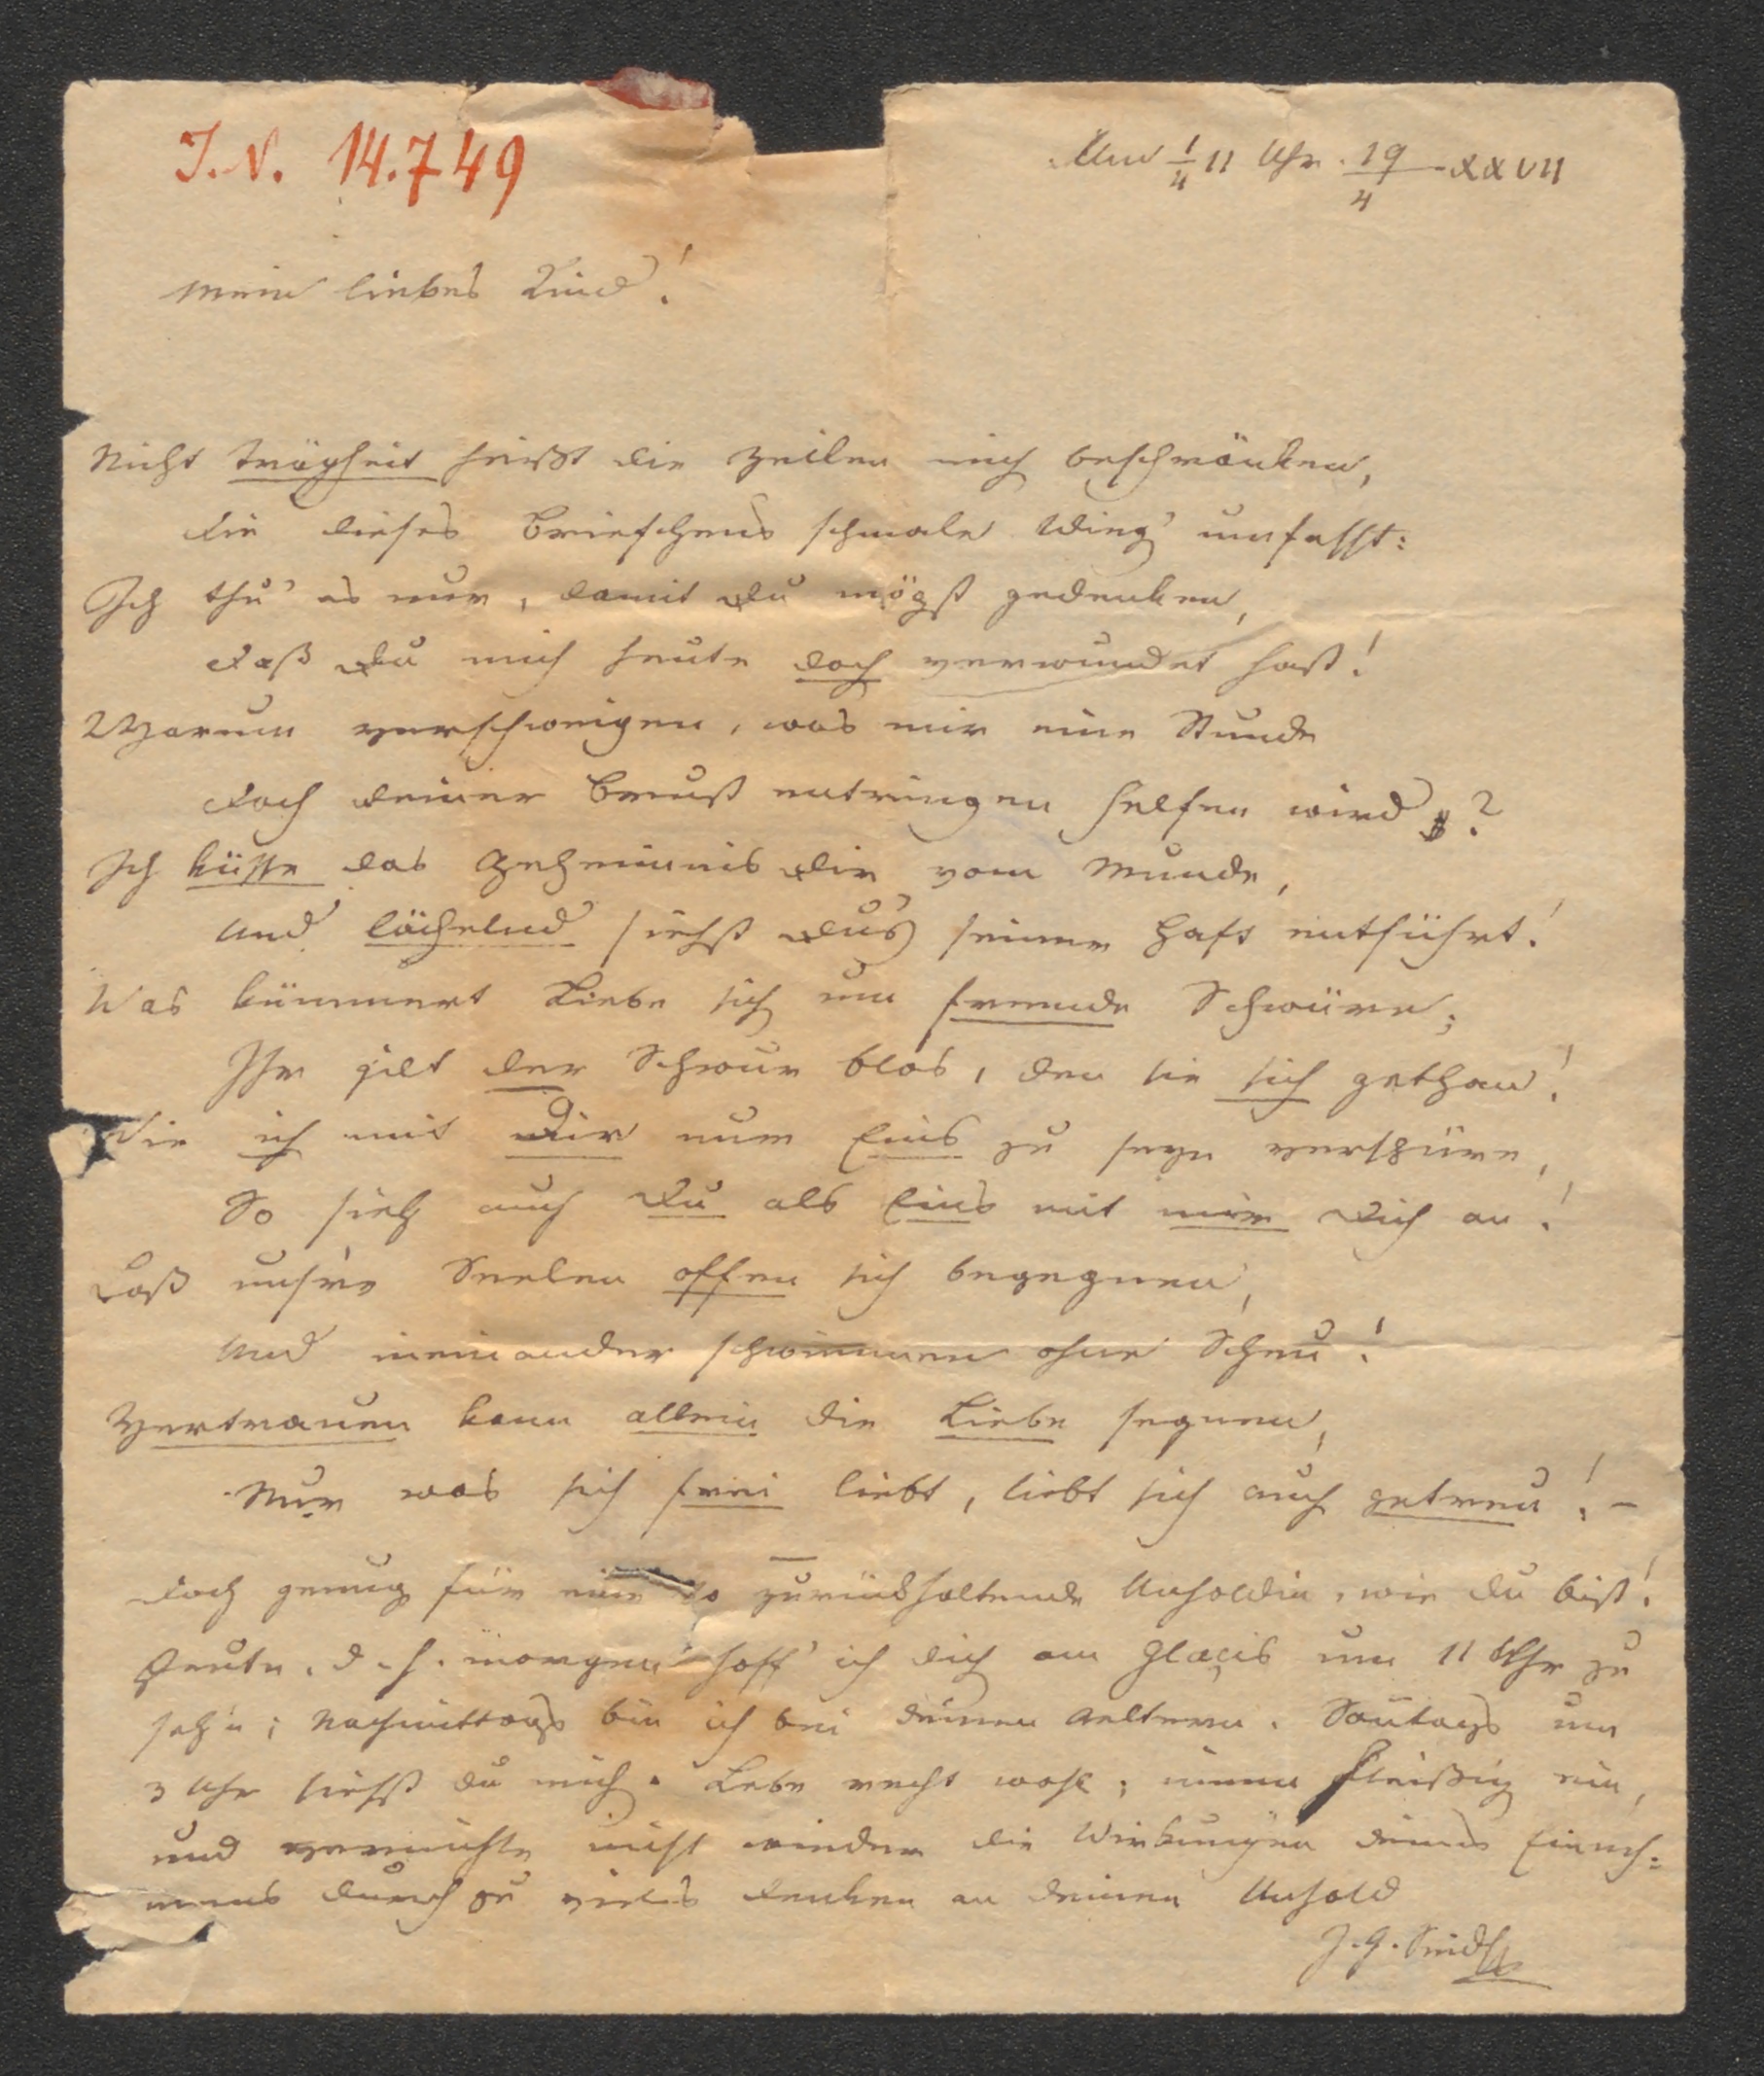 J. N. 14.749
Um 1/4 11 Uhr. 19/4 XXVII
Mein liebes Kind!
Nicht Trägheit heißt die Zeilen mich beschränken,
Die dieses Briefchens schmale umfasst:
Ich thu' es nur, damit Du mögst gedenken,
Daß Du mich heute doch verwundet hast!
Warum verschweigen, was mir eine Stunde
Doch deiner Brust entringen helfen wird?
Ich küsse das Geheimnis Dir vom Munde,
Und lächelnd siehst Du's seiner Haft entführt!
Was kümmert Liebe sich um fremde Schwüre;
Ihr gilt der Schwur blos, den sie sich gethan!
Wie ich mit Dir nur Eins zu seyn verspüre,
So sieh auch Du als Eins mit mir Dich an!
Laß unsre Seelen offen sich begegnen,
Und ineinander schwimmen ohne Scheu!
Vertrauen kann allein die Liebe segnen,
Nur was sich frei liebt, liebt sich auch getreu! –
Doch genug für eine so zurückhaltende Unholdin, wie du bist!
Heute, d. h. morgen hoff' ich dich am Glaçis um 11 Uhr zu
seh'n; Nachmittags bin ich bei deinen Aeltern. Soñtags um
3 Uhr siehst du mich. Lebe recht wohl; nimm fleißig ein,
und vernichte nicht wieder die Wirkungen deines Einneh-
mens durch zu vieles Denken an deinen Unhold
J. G. Seidl